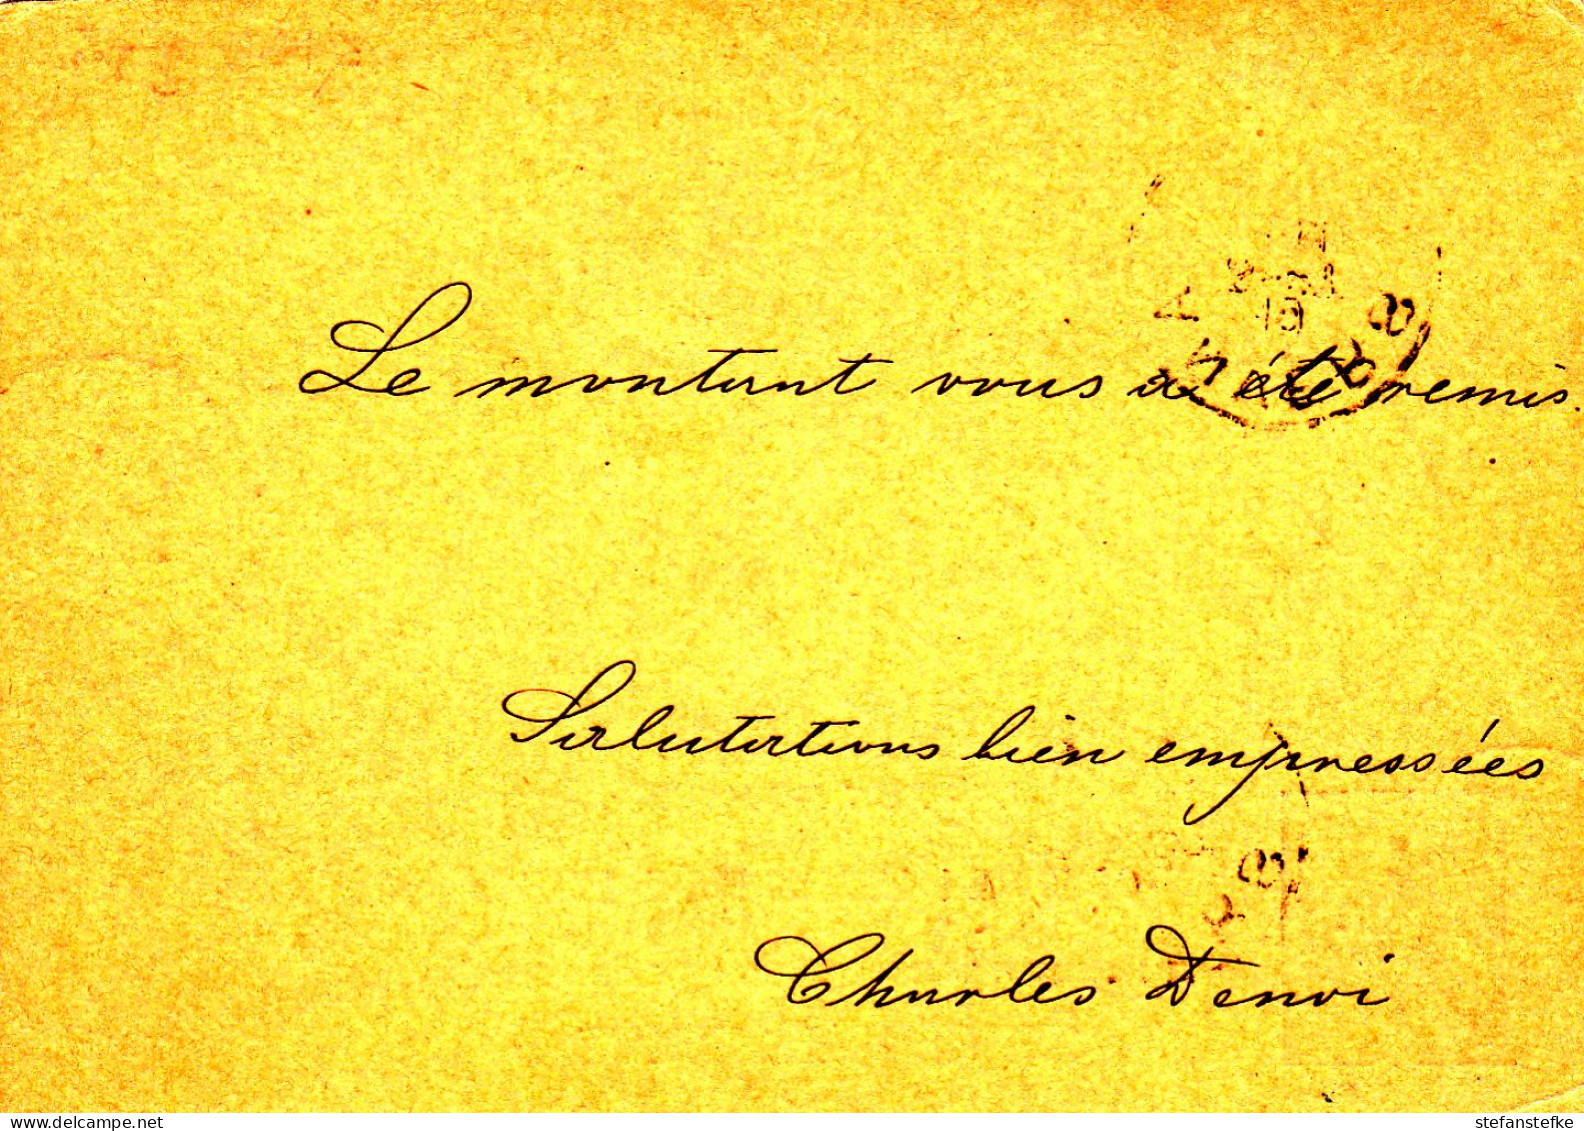 Le montant vous a été remis.
Salutations bien empressées
Charles Denoi
www.delcampe.net
stefanstefke